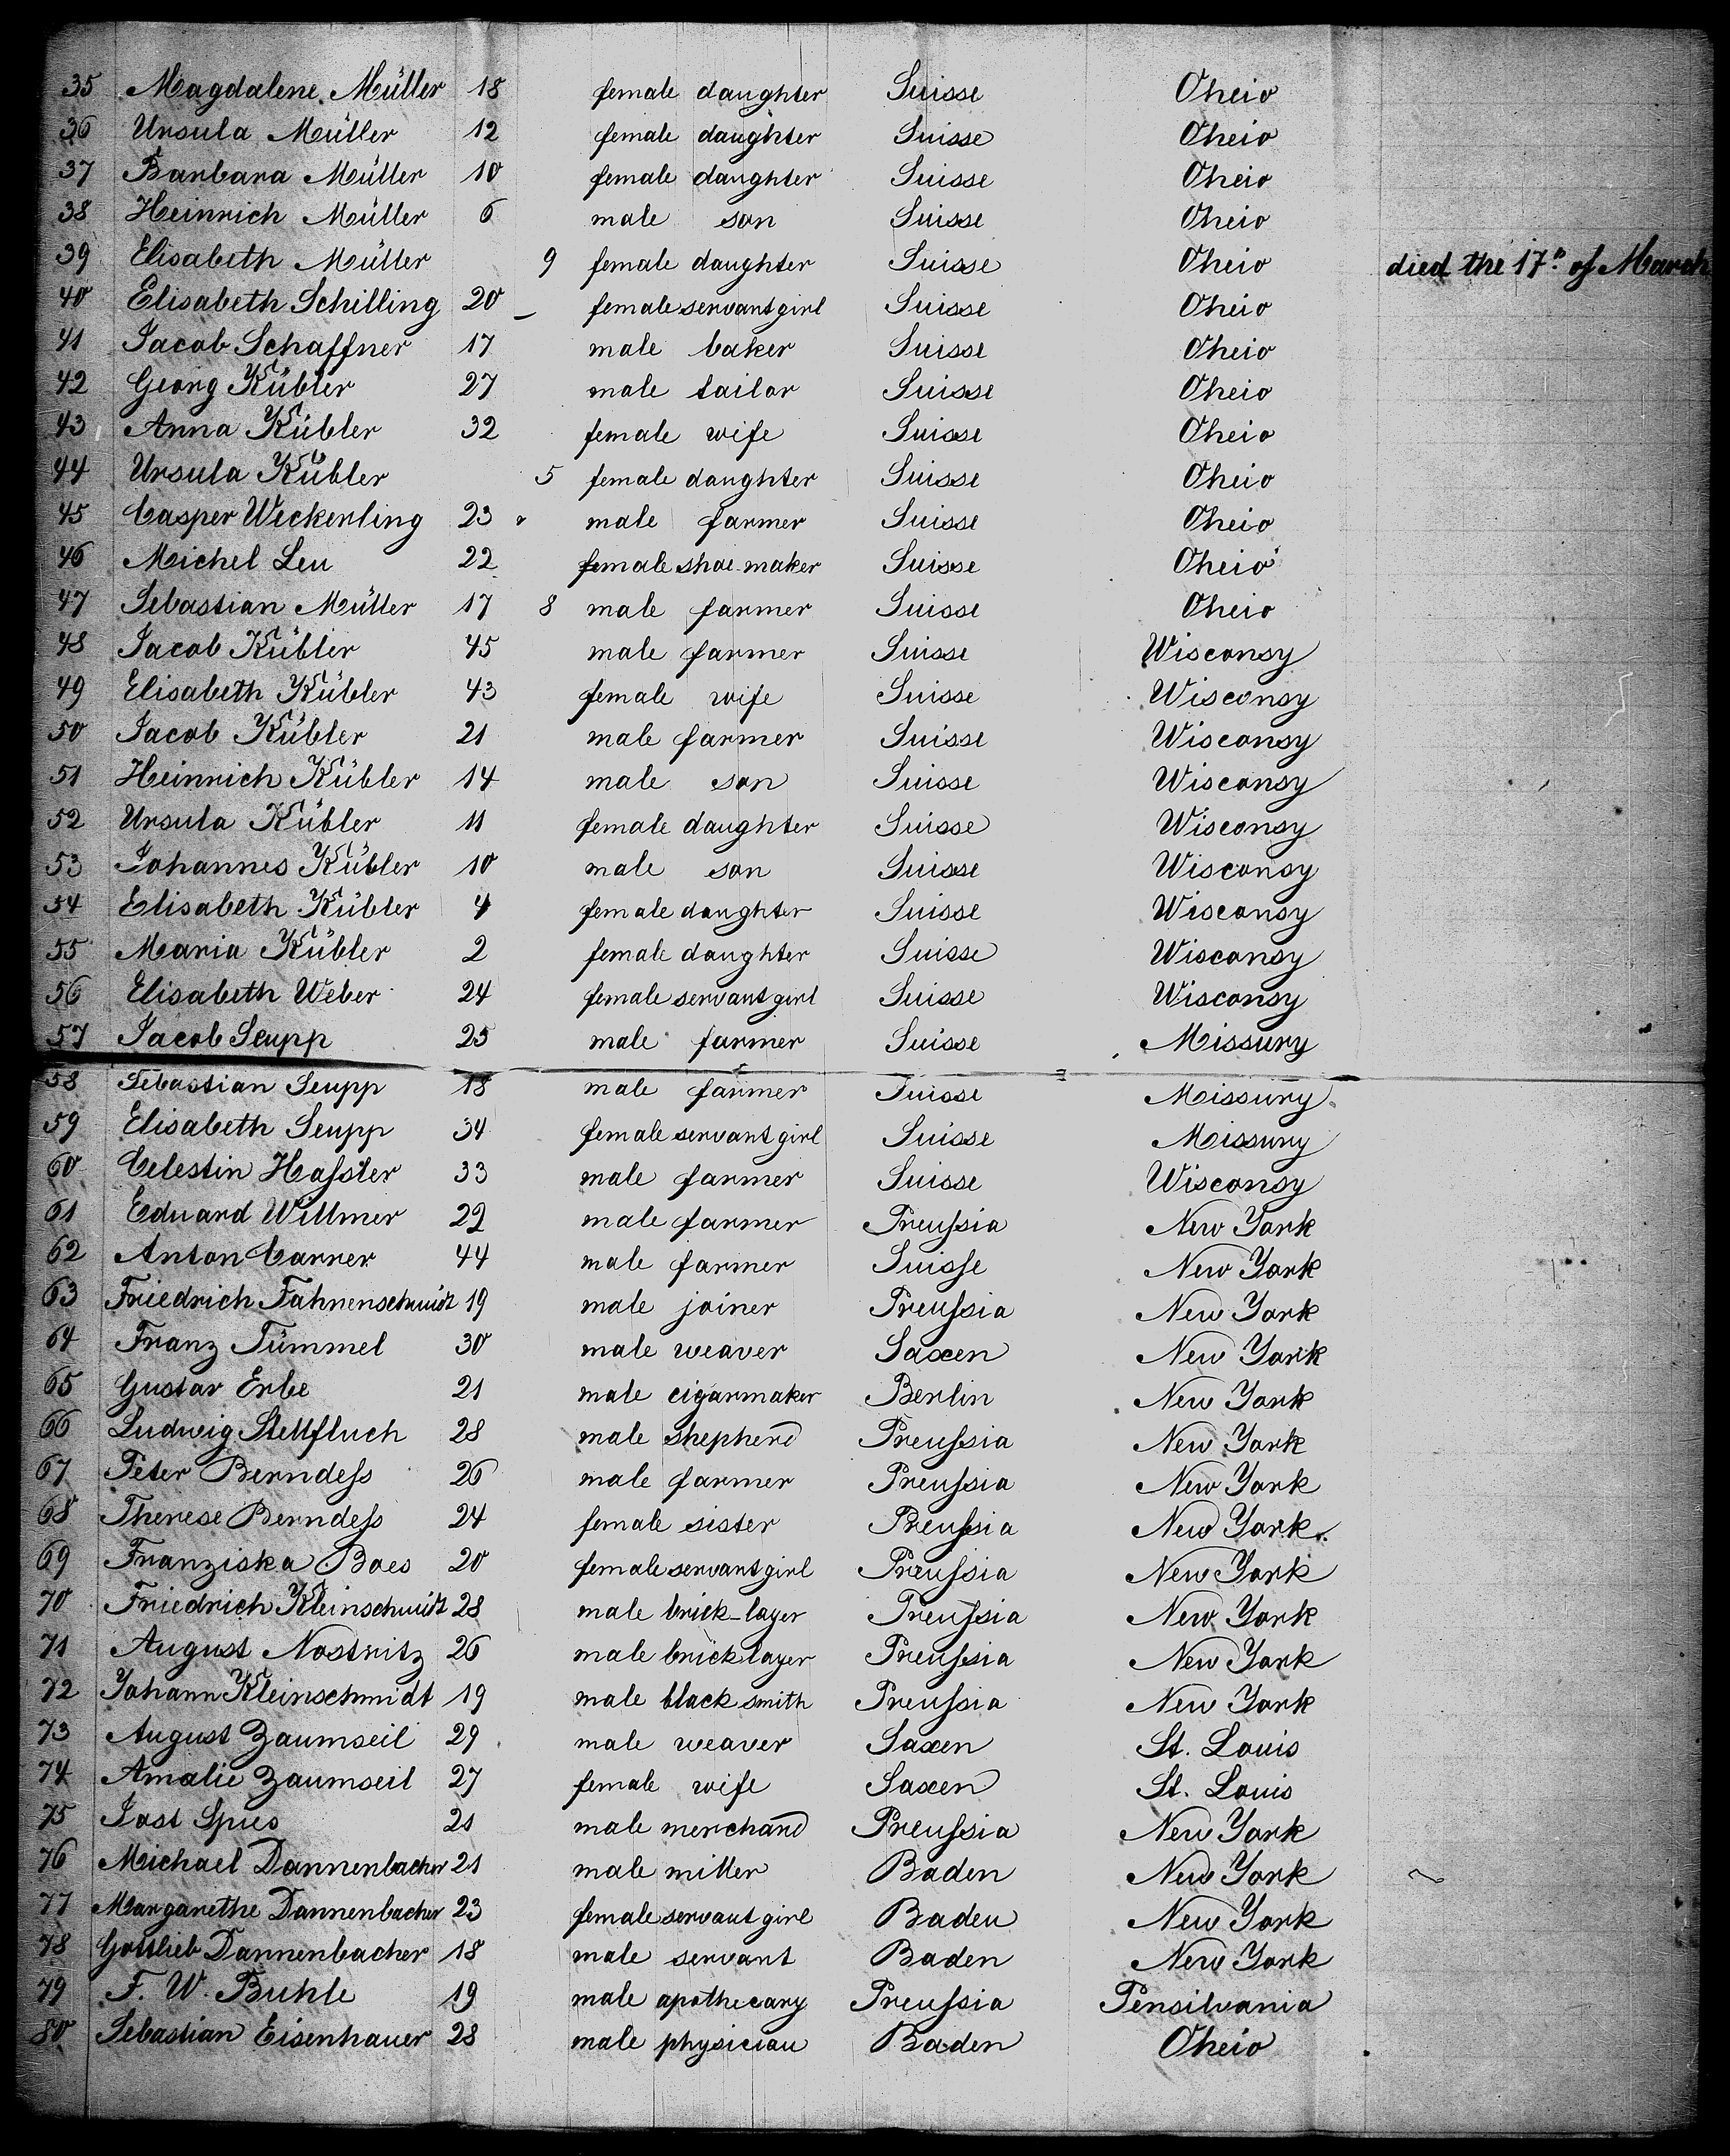 35 Magdalene Müller 18 female daughter Suisse Oheio
36 Ursula Müller 12 female daughter Suisse Oheio
37 Barbara Müller 10 female daughter Suisse Oheio
38 Heinrich Müller 6 male son Suisse Oheio
39 Elisabeth Müller 9 female daughter Suisse Oheio died the 17n of March
40 Elisabeth Schilling 20 female servantgirl Suisse Oheio
41 Jacob Schaffner 17 male baker Suisse Oheio
42 Georg Kübler 27 male tailor Suisse Oheio
43 Anna Kübler 32 female wife Suisse Oheio
44 Ursula Kübler 5 female daughter Suisse Oheio
45 Casper Weckerling 23 male farmer Suisse Oheio
46 Michel Leu 22 female shoe-maker Suisse Oheio
47 Sebastian Müller 17 8 male farmer Suisse Oheio
48 Jacob Kübler 45 male farmer Suisse Wisconsy
49 Elisabeth Kübler 43 female wife Suisse Wisconsy
50 Jacob Kübler 21 male farmer Suisse Wisconsy
51 Heinrich Kübler 14 male son Suisse Wisconsy
52 Ursula Kübler 11 female daughter Suisse Wisconsy
53 Johannes Kübler 10 male son Suisse Wisconsy
54 Elisabeth Kübler 4 female daughter Suisse Wisconsy
55 Maria Kübler 2 female daughter Suisse Wisconsy
56 Elisabeth Weber 24 female servantgirl Suisse Wisconsy
57 Jacob Seupp 25 male farmer Suisse Missury
58 Sebastian Seupp 18 male farmer Suisse Missury
59 Elisabeth Seupp 34 female servantgirl Suisse Missury
60 Celestin Haſsler 33 male farmer Suisse Wisconsy
61 Eduard Willmer 29 male farmer Preuſsia New York
62 Anton Carrer 44 male farmer Suiſse New York
63 Friedrich Fahnenschmidt 19 male joiner Preuſsia New York
64 Franz Tümmel 30 male weaver Saxen New York
65 Gustav Erbe 21 male cigarmaker Berlin New York
66 Ludwig Stellfluch 28 male shepherd Preuſsia New York
67 Peter Berndeſs 26 male farmer Preuſsia New York
68 Therese Berndeſs 24 female sister Preuſsia New York
69 Franziska Boes 20 female servantgirl Preuſsia New York
70 Friedrich Kleinschmidt 28 male brick-layer Preuſsia New York
71 August Nostritz 26 male bricklayer Preuſsia New York
72 Johann Kleinschmidt 19 male black smith Preuſsia New York
73 August Zaumseil 29 male weaver Saxen St. Louis
74 Amalie Zaumseil 27 female wife Saxen St. Louis
75 Jost Spies 21 male merchand Preuſsia New York
76 Michael Dannenbacher 21 male miller Baden New York
77 Margarethe Dannenbacher 23 female servant girl Baden New York
78 Gottlieb Dannenbacher 18 male servant Baden New York
79 F. W. Buhle 19 male apothecary Preuſsia Pensilvania
80 Sebastian Eisenhauer 28 male physician Baden Oheio